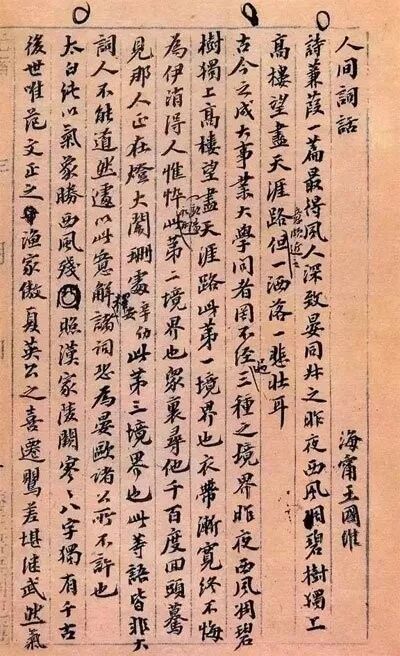 人间詞話
海甯王國維
詩蒹葭一篇最得風人深致晏同叔之昨夜西风凋碧樹獨上
高樓望盡天涯路意頗近之但一洒落一悲壯耳
古今之成大事業大學問者罔不经過三種之境界昨夜西風凋碧
樹獨上高樓望盡天涯路此第一境界也衣帶漸寬終不悔
為伊消得人憔悴歐陽永叔此第二境界也眾裏尋他千百度回頭驀
見那人正在燈火闌珊處辛幼安此第三境界也此等語皆非大
詞人不能道然遽以此意解諸詞恐為晏歐諸公所不許也
太白純以氣象勝西風殘照漢家陵闕寥〻八字獨有千古
後世唯范文正之漁家傲夏英公之喜遷鶯差堪繼武然氣